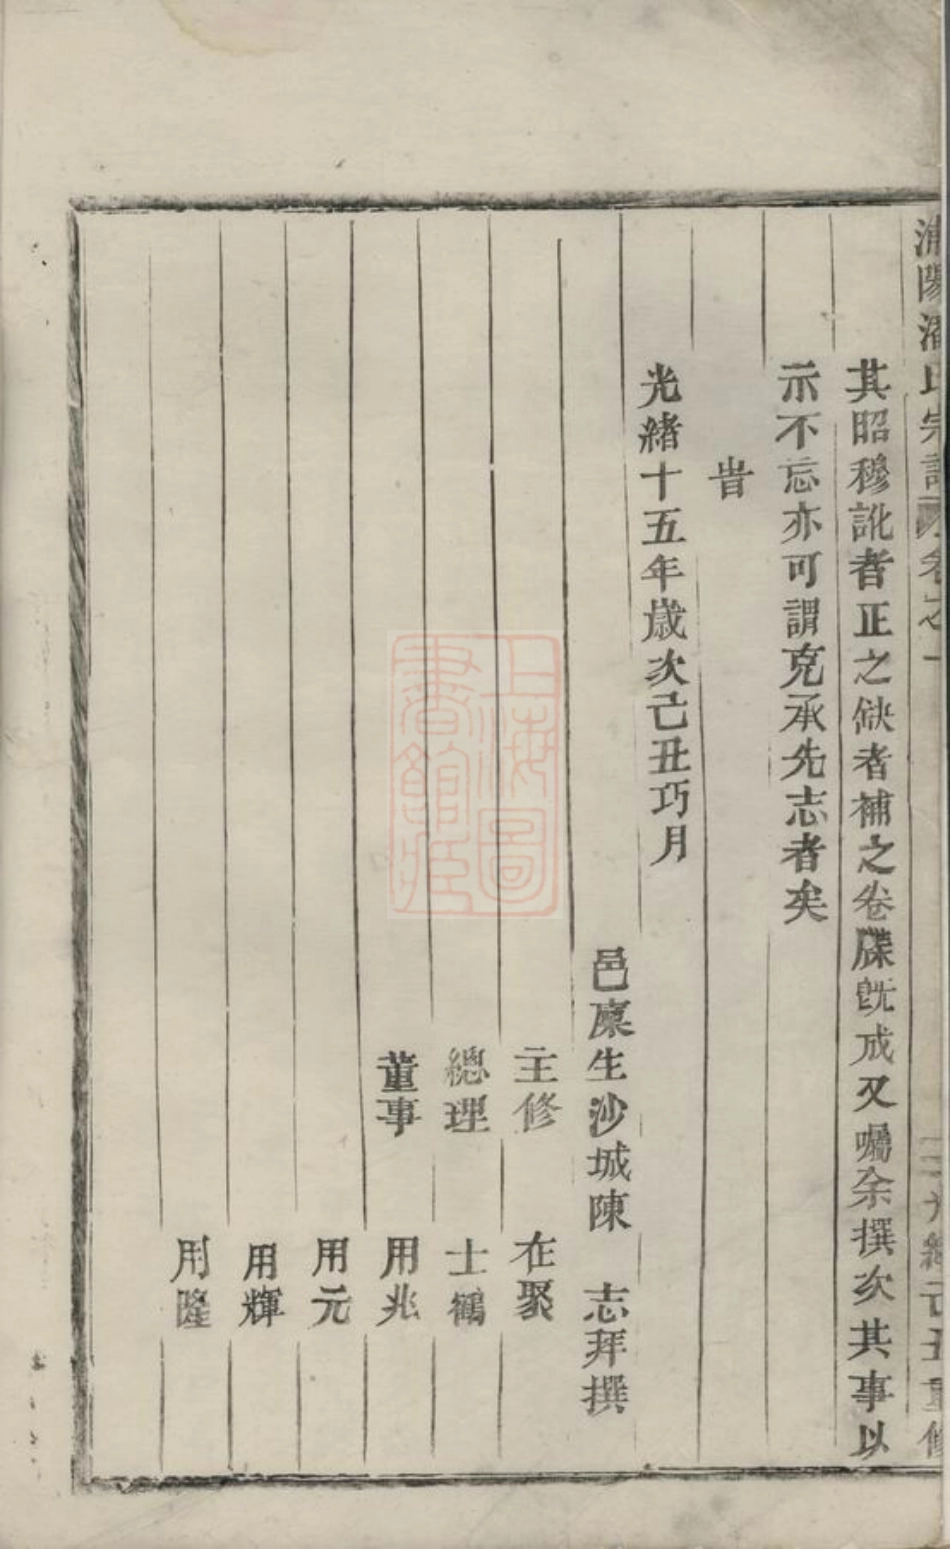 浦陽潘氏宗譜 卷之一 二 光緒己丑重修
其昭穆訛者正之缺者補之卷牒旣成又囑余撰次其事以
示不忘亦可謂克承先志者矣
旹
光緒十五年歲次己丑巧月
邑廪生沙城陳 志拜撰
主修 在聚
總理 士鶴
董事 用兆
用元
用輝
用隆
上海圖書館藏